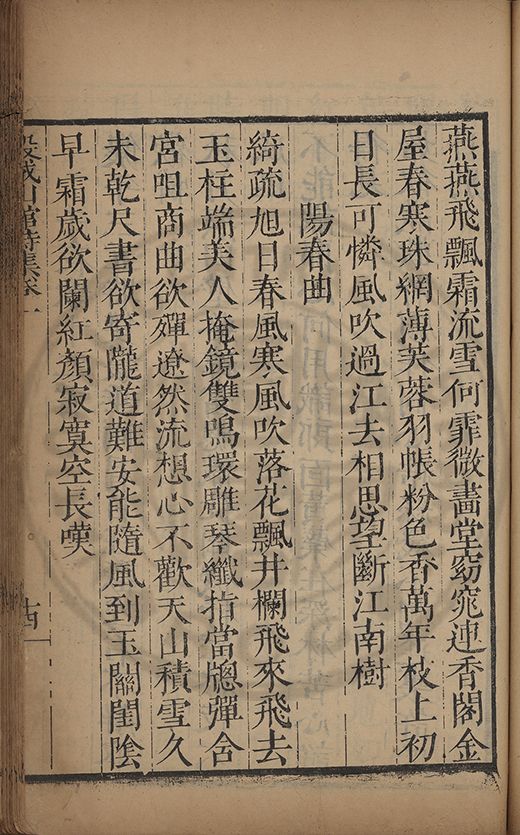 燕燕飛飄霜流雪何霏微畵堂窈窕連香閣金
屋春寒珠網薄芙蓉羽帳粉色香萬年枝上初
日長可憐風吹過江去相思望斷江南樹
陽春曲
綺疏旭日春風寒風吹落花飄井欄飛來飛去
玉柱端美人掩鏡雙鳴環雕琴纖指當牕彈含
宮咀商曲欲殫遼然流想心不歡天山積雪久
未乾尺書欲寄隴道難安能隨風到玉關閨陰
早霜歲欲闌紅顏寂寞空長嘆
山館詩集卷一
十四